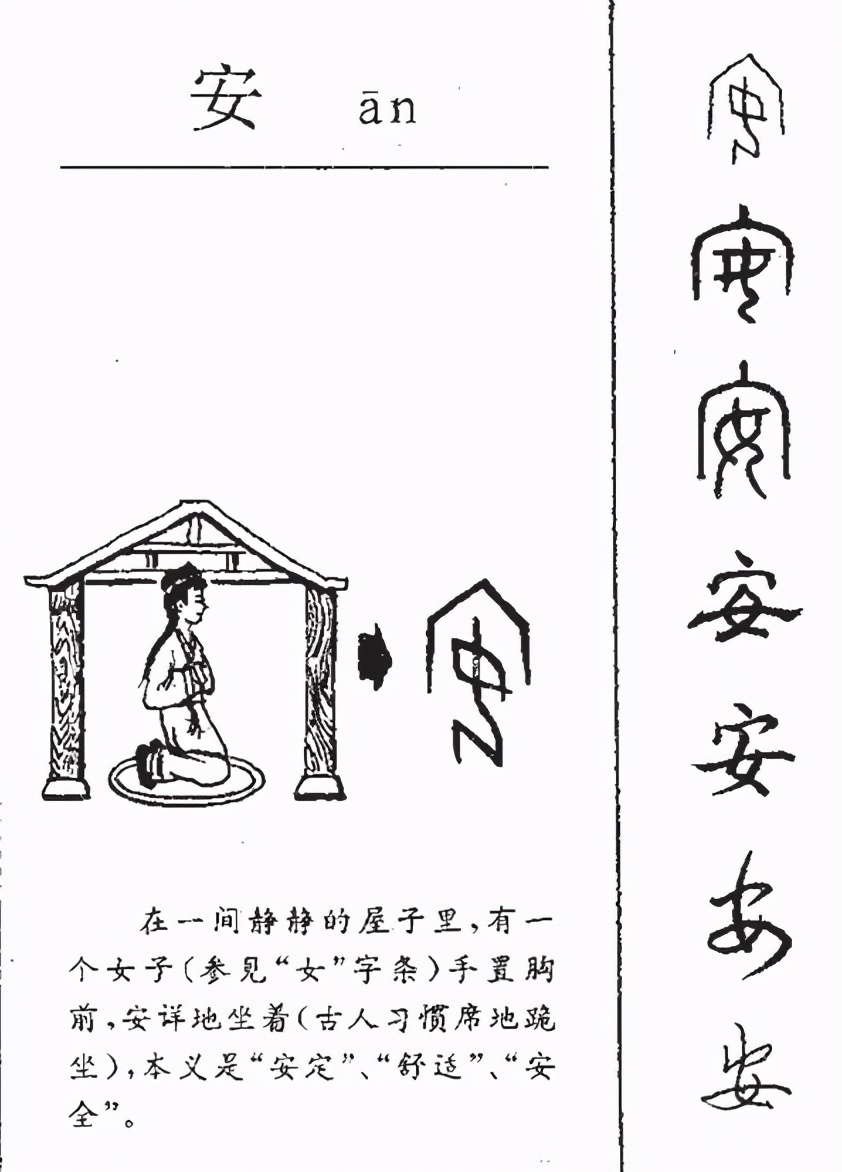 安 ān
在一间静静的屋子里,有一
个女子(参见“女”字条)手置胸
前,安详地坐着(古人习惯席地跪
坐),本义是“安定”、“舒适”、“安
全”。
安
安
安
安
安
安
安
安